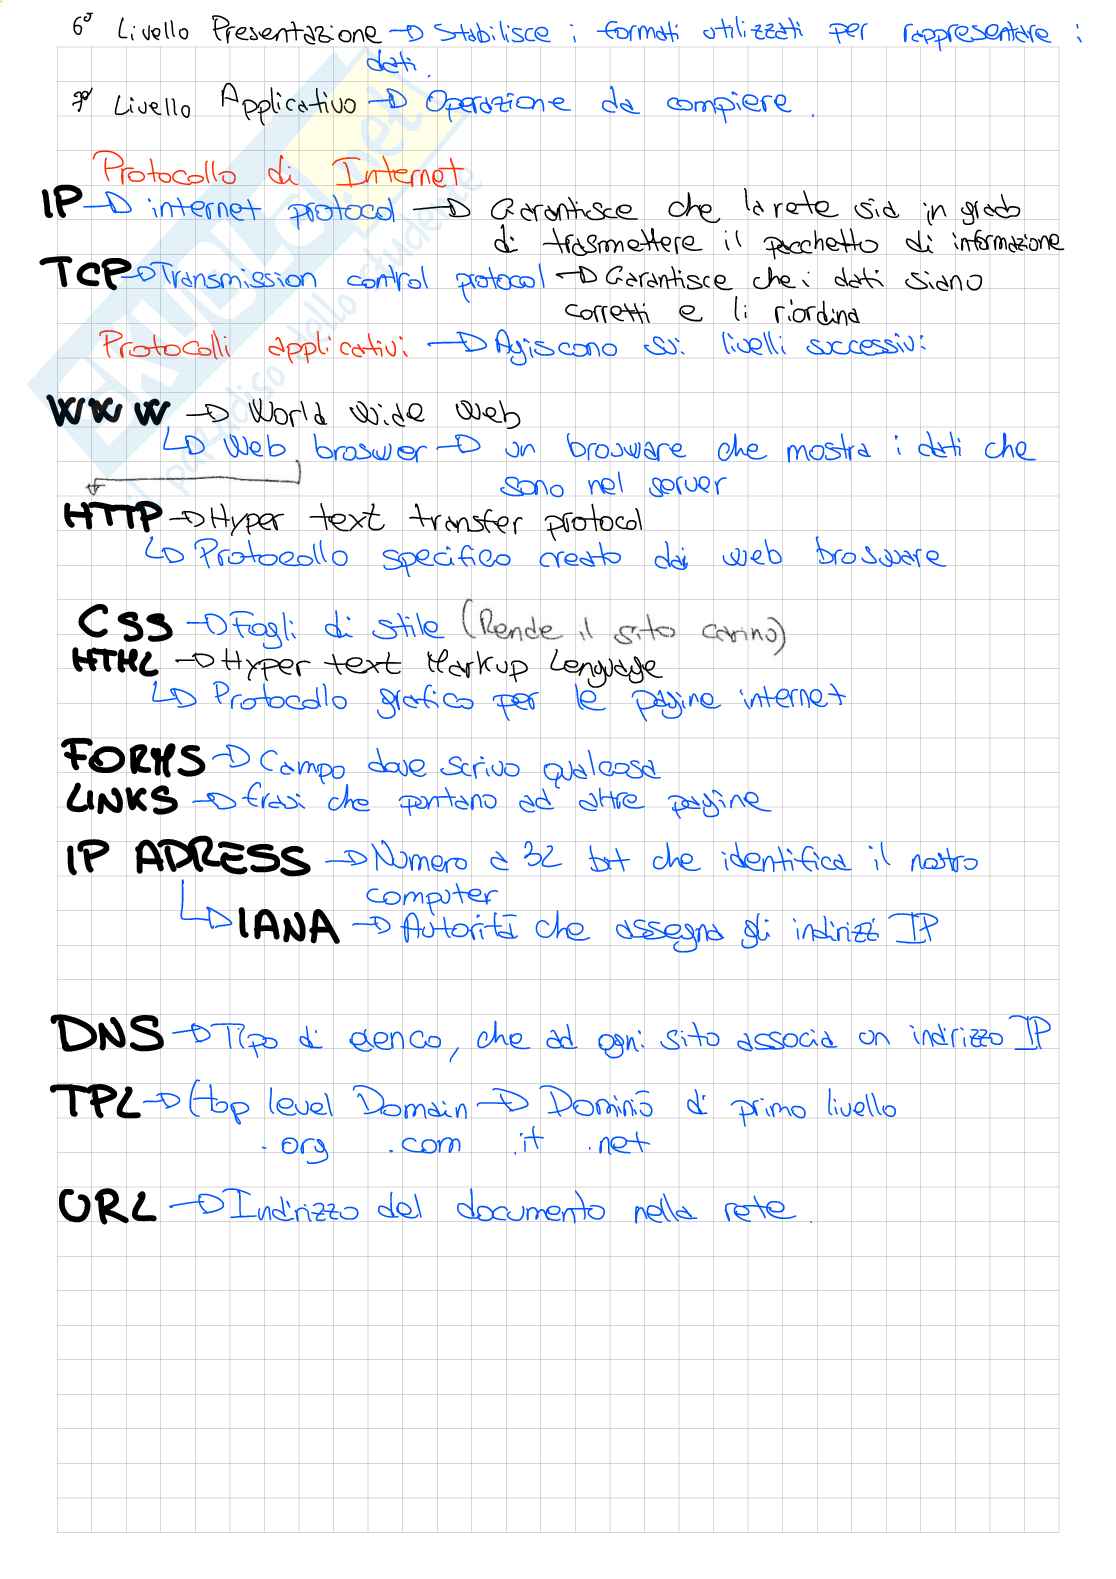 6° Livello Presentazione → Stabilisce i formati utilizzati per rappresentare i
dati.
7° Livello Applicativo → Operazione da compiere.
Protocollo di Internet
IP → internet protocol → Garantisce che la rete sia in grado
di trasmettere il pacchetto di informazione
TCP → Transmission control protocol → Garantisce che i dati siano
corretti e li riordina
Protocolli applicativi → Agiscono sui livelli successivi:
WWW → World Wide Web
↳ Web broswer → un brosware che mostra i dati che
sono nel server
HTTP → Hyper text transfer protocol
↳ Protocollo specifico creato dai web brosware
CSS → Fogli di stile (Rende il sito carino)
HTML → Hyper text Markup Lenguage
↳ Protocollo grafico per le pagine internet
FORMS → Campo dove scrivo qualcosa
LINKS → frasi che portano ad altre pagine
IP ADRESS → Numero a 32 bit che identifica il nostro
computer
↳ IANA → Autorità che assegna gli indirizzi IP
DNS → Tipo di elenco, che ad ogni sito associa un indirizzo IP
TPL → (top level Domain → Dominio di primo livello
.org .com .it .net
URL → Indirizzo del documento nella rete.